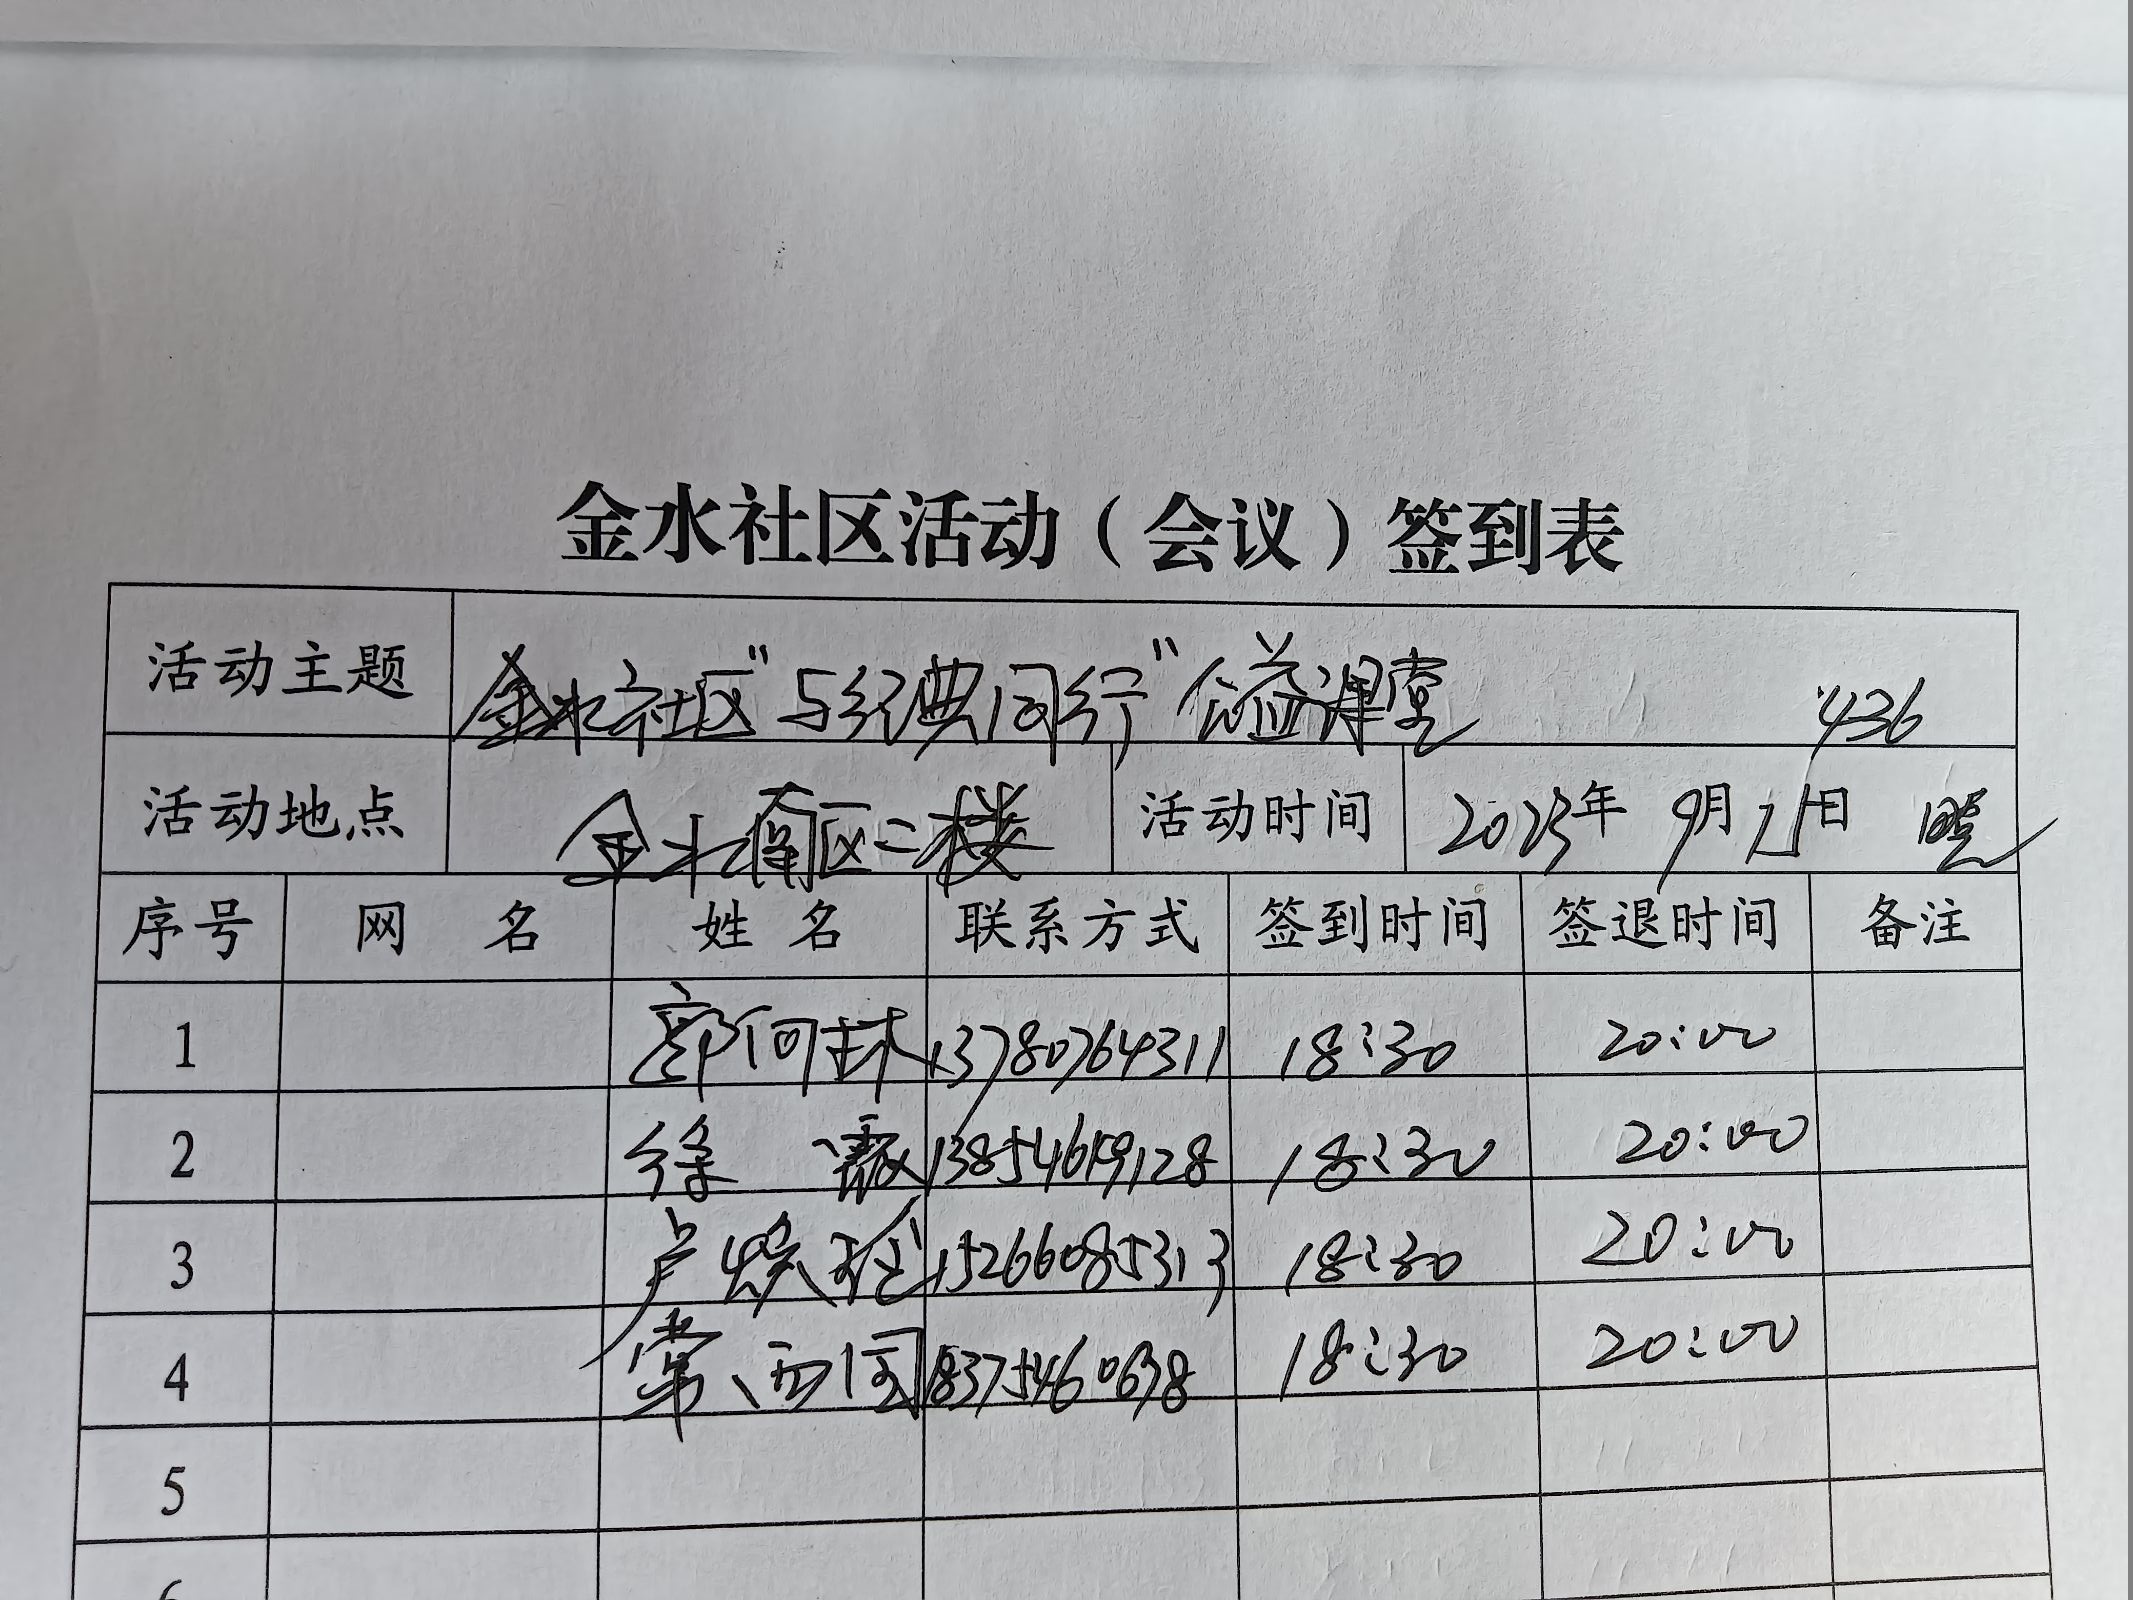 金水社区活动（会议）签到表
活动主题 金水社区"与经典同行"公益课堂 436
活动地点 金水南区二楼 活动时间 2023年 9月 日 晚
序号 网 名 姓 名 联系方式 签到时间 签退时间 备注
1 郭向 13780764311 18:30 20:00
2 徐 18:30 20:00
3 卢 15266085313 18:30 20:00
4 常 18375460638 18:30 20:00
5
6